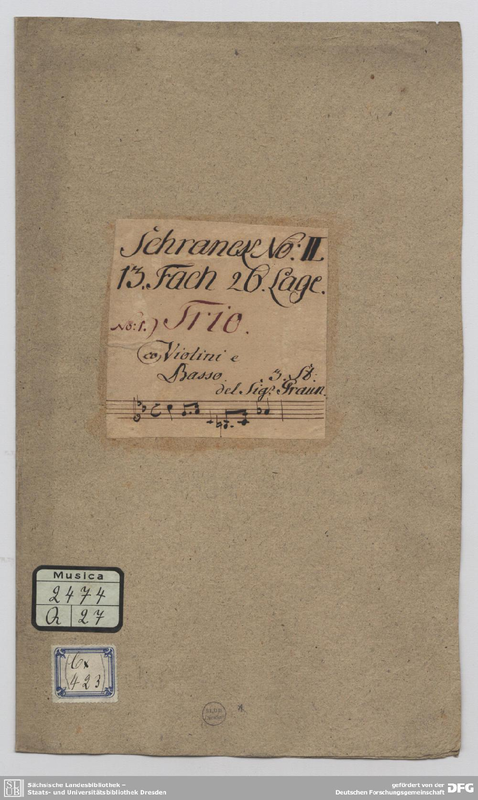 Schranck No: II.
13. Fach 26. Lage.
No: 1.) Trio.
co Violini e
Basso. 3. St:
del Sigr. Graun.
Musica
2474
O 27
Cx
423
SLUB
Sächsische Landesbibliothek –
Staats- und Universitätsbibliothek Dresden
gefördert von der
Deutschen Forschungsgemeinschaft
DFG